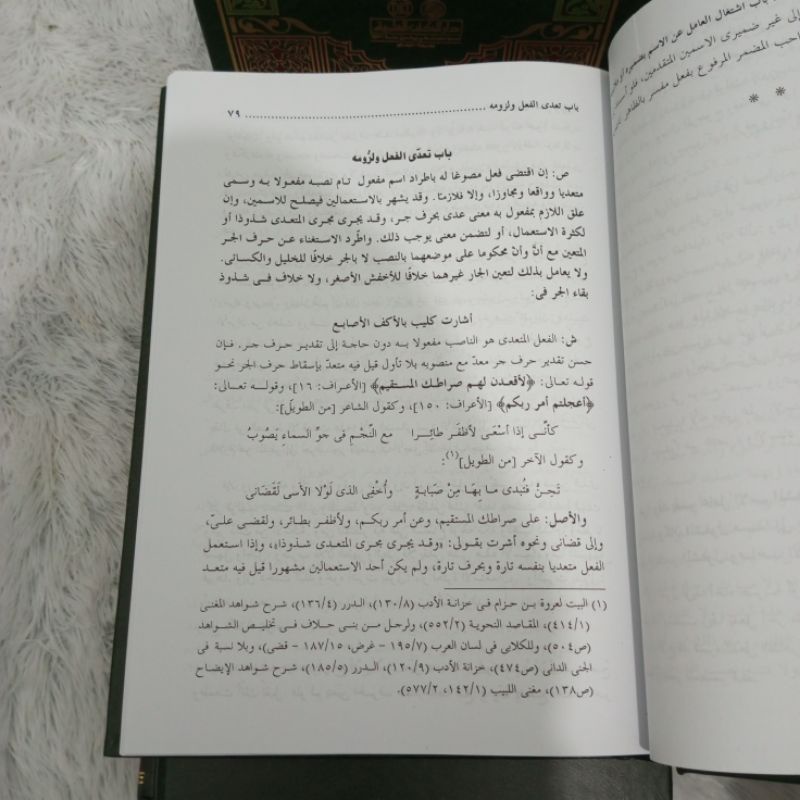 باب تعدى الفعل ولزومه ........................................................ ٧٩
باب تعدّى الفعل ولزُومه
ص: إن اقتضى فعل مصوغا له باطراد اسم مفعول تام نصبه مفعولا به وسمى
متعديا وواقعا ومجاوزا، وإلا فلازمًا. وقد يشهر بالاستعمالين فيصلح للاسمين، وإن
علق اللازم بمفعول به معنى عدى بحرف جر، وقد يجرى مجرى المتعدى شذوذا أو
لكثرة الاستعمال، أو لتضمن معنى يوجب ذلك. واطّرد الاستغناء عن حرف الجر
المتعين مع أنَّ وأنْ محكوما على موضعهما بالنصب لا بالجر خلافًا للخليل والكسائى.
ولا يعامل بذلك لتعين الجار غيرهما خلافًا للأخفش الأصغر، ولا خلاف فى شذوذ
بقاء الجر فى:
أشارت كليب بالأكف الأصابع
ش: الفعل المتعدى هو الناصب مفعولا به دون حاجة إلى تقدير حرف جر. فإن
حسن تقدير حرف جر معدّ مع منصوبه بلا تأول قيل فيه متعدّ بإسقاط حرف الجر نحو
قوله تعالى: ﴿لأقعدن لهم صراطك المستقيم﴾ [الأعراف: ١٦]، وقوله تعالى:
﴿أعجلتم أمر ربكم﴾ [الأعراف: ١٥٠]، وكقول الشاعر [من الطويل]:
كأنّى إذا أسْعَى لأظفَر طائِرا مع النّجْم فى جوِّ السماءِ يَصُوبُ
وكقول الآخر [من الطويل](١):
تَحِنُّ فتُبدى ما بِهَا مِنْ صَبابةٍ وأُخْفِى الذى لَوْلا الأسَى لَقَضَانى
والأصل: على صراطك المستقيم، وعن أمر ربكم، ولأظفر بطائر، ولقضى علىّ،
وإلى قضانى ونحوه أشرت بقولى: «وقد يجرى مجرى المتعدى شذوذا»، وإذا استعمل
الفعل متعديا بنفسه تارة وبحرف تارة، ولم يكن أحد الاستعمالين مشهورا قيل فيه متعد
(١) البيت لعروة بن حزام فى خزانة الأدب (١٣٠/٨)، الدرر (١٣٦/٤)، شرح شواهد المغنى
(٤١٤/١)، المقاصد النحوية (٥٥٢/٢)، ولرجل من بنى كلاف فى تخليص الشواهد
(ص٥٠٤)، وللكلابى فى لسان العرب (١٩٥/٧ - غرض، ١٨٧/١٥ - قضى)، وبلا نسبة فى
الجنى الدانى (ص٤٧٤)، خزانة الأدب (١٢٠/٩)، الدرر (١٨٥/٥)، شرح شواهد الإيضاح
(ص١٣٨)، مغنى اللبيب (١٤٢/١، ٥٧٧/٢).
باب اشتغال العامل عن الاسم بضميره
إلى غير ضميرى الاسمين المتقدمين، فلو
المضمر المرفوع بفعل مفسر بالظاهر
* *